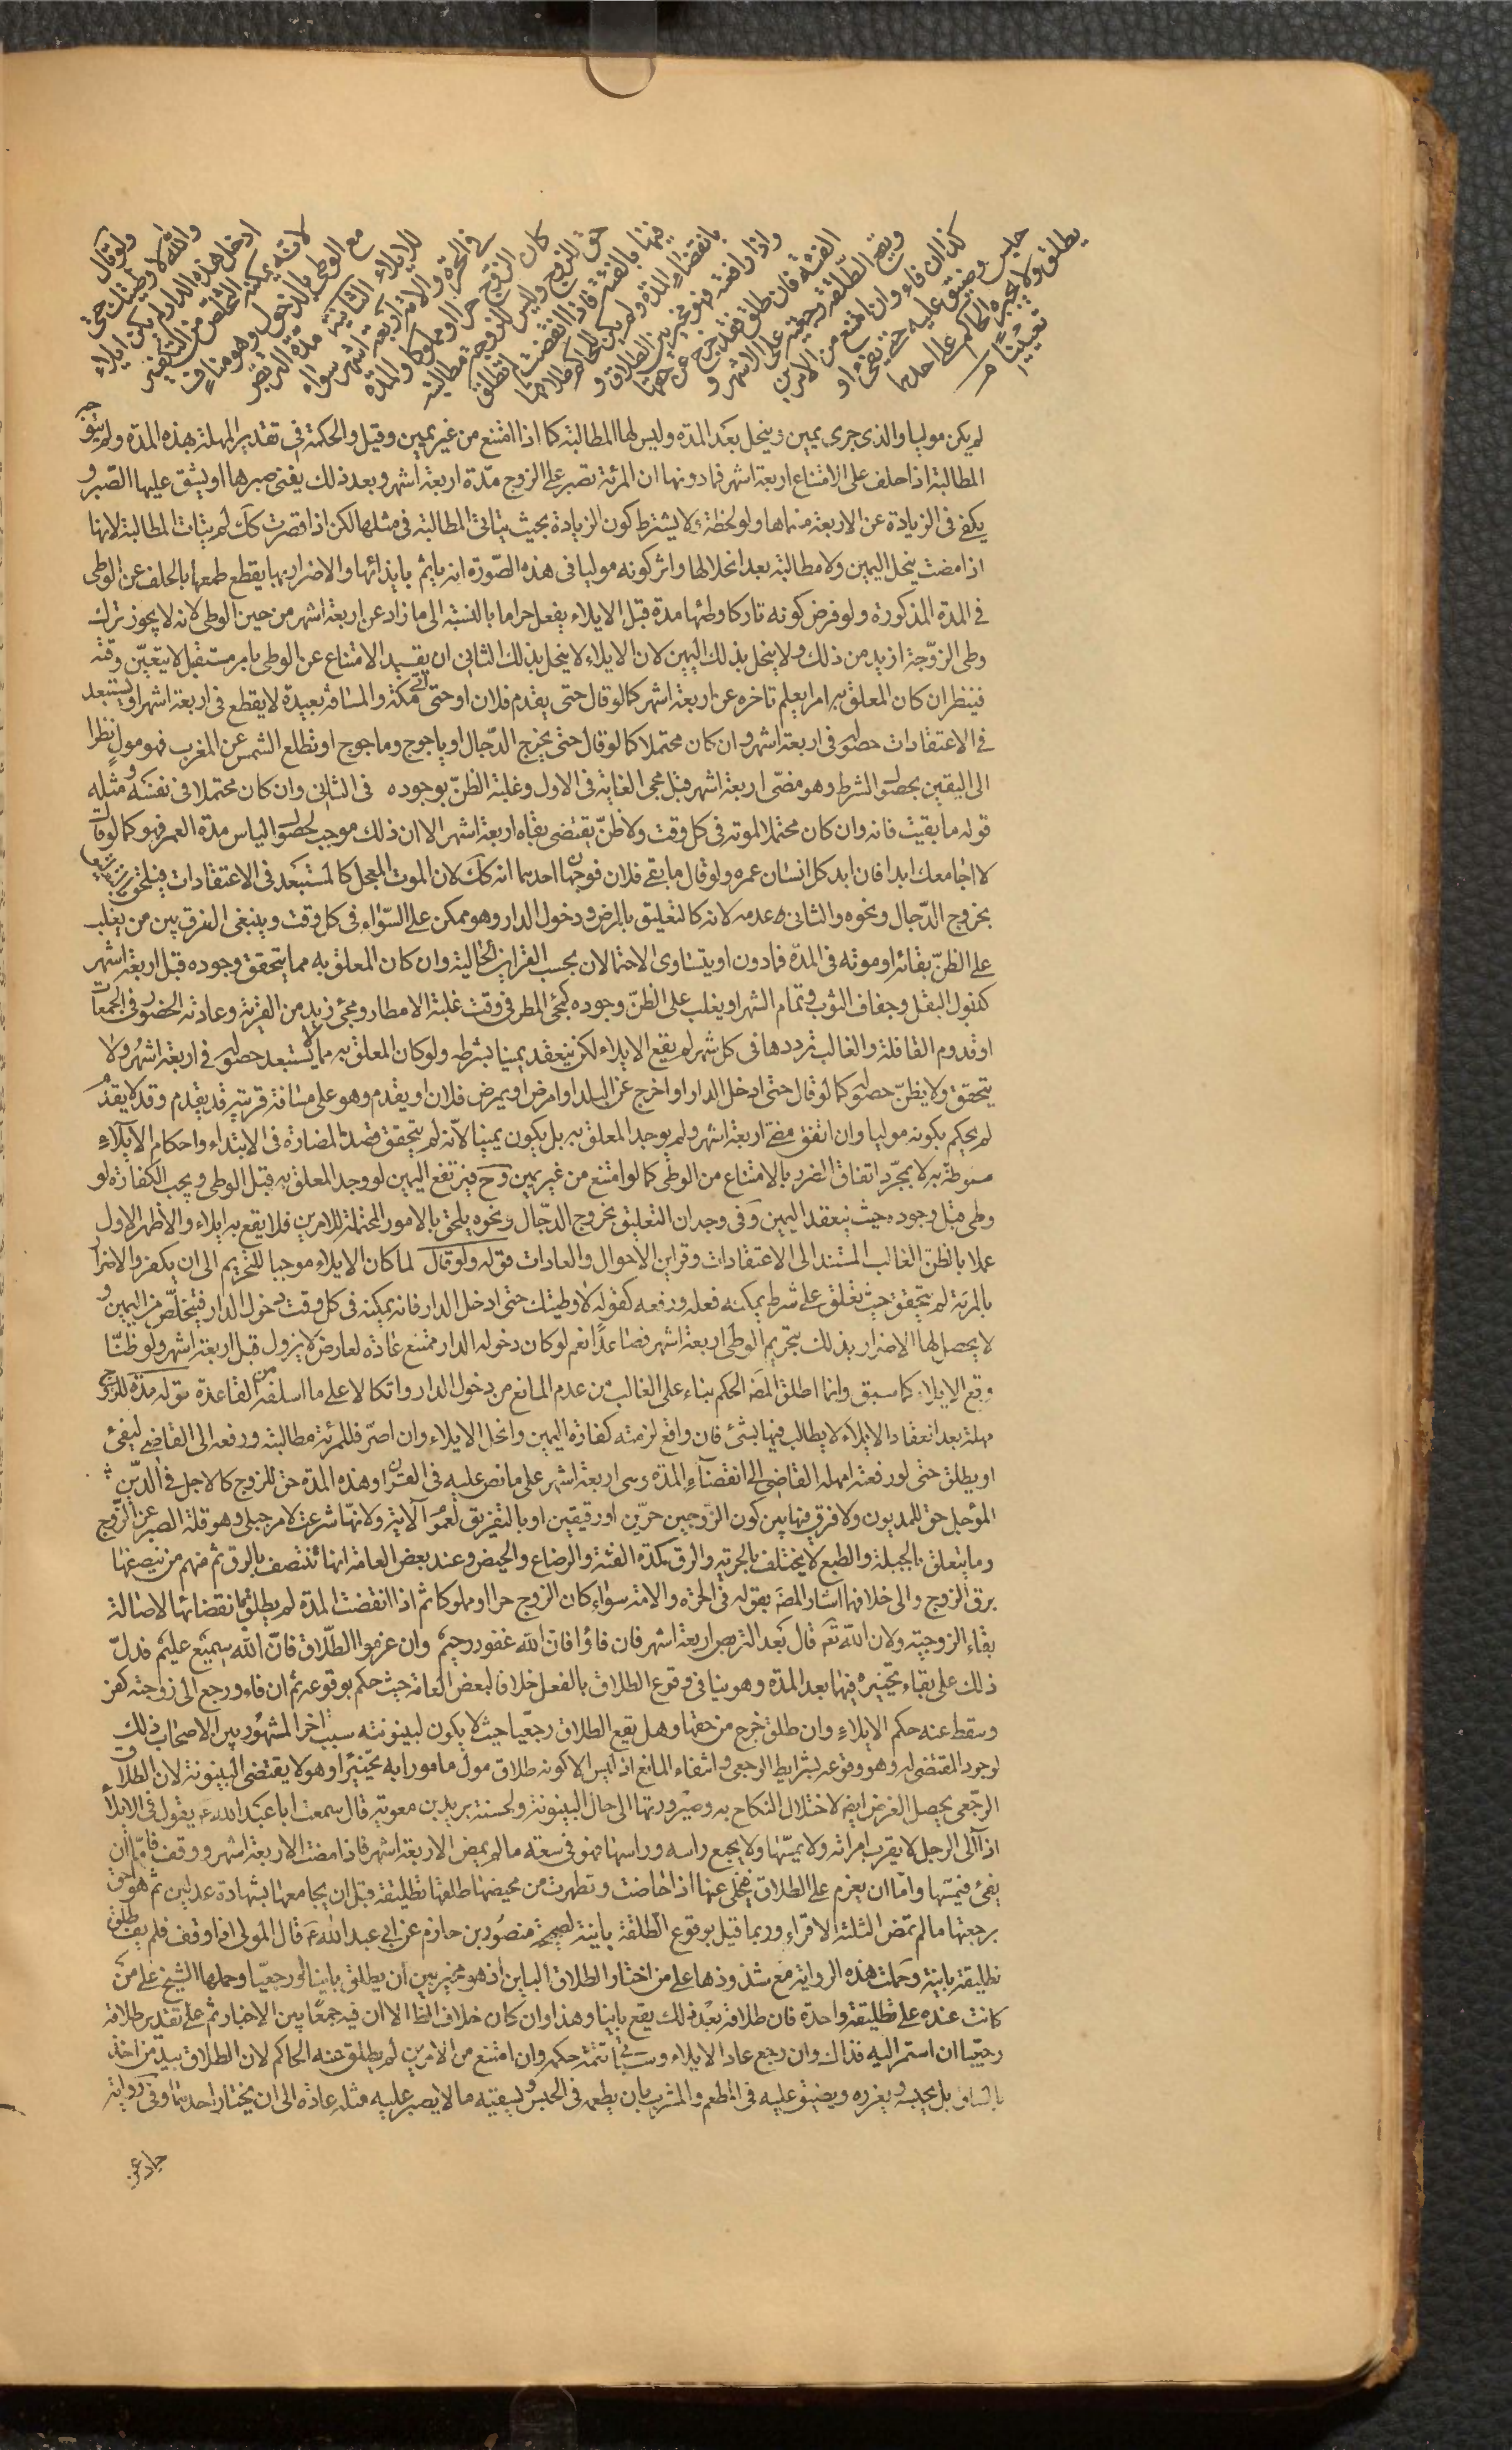 ولو قال
والله لا وطئتك حتى
ادخل هذه الدار لم يكن ايلاء
لانه يمكنه التخلص من التكفير
مع الوطى بالدخول وهو مناف
للايلاء الثانية مدة التربص
في الحرة والامة اربعة اشهر سواء
كان الزوج حرا او مملوكا والمدة
حق للزوج وليس للزوجة مطالبته
فيها بالفئة فاذا انقضت لم تطلق
بانقضاء المدة ولم يكن للحاكم طلاقها
واذا رافعته فهو مخير بين الطلاق و
الفئة فان طلق فقد خرج عن حقها
ويقع الطلقة رجعية على الاشهر و
كذا ان فاء وان امتنع من الامرين
حبس وضيق عليه حتى يفئ او
يطلق ولا يجبره الحاكم على احدهما
تعيينا
لم يكن موليا والذى جرى يمين وينحل بعد المدة وليس لها المطالبة كما اذا امتنع من غير يمين وقيل والحكمة في تقدير المهلة بهذه المدة ولم يتوجه
المطالبة اذا حلف على الامتناع اربعة اشهر فما دونها ان المرئة تصبر على الزوج مدة اربعة اشهر وبعد ذلك يفنى صبرها او يشق عليها الصبر و
يكفى في الزيادة عن الاربعة مسماها ولو لحظة لا يشترط كون الزيادة بحيث يتاتى المطالبة في مثلها لكن اذا قصرت كك لم يتات المطالبة لانها
اذا مضت ينحل اليمين ولا مطالبة بعد انحلالها واثر كونه موليا في هذه الصورة انه ياثم بايذائها والاضرار بها بقطع طمعها بالحلف عن الوطى
في المدة المذكورة ولو فرض كونه تاركا وطئها مدة قبل الايلاء يفعل حراما بالنسبة الى ما زاد عن اربعة اشهر من حين الوطى لانه لا يجوز ترك
وطى الزوجة ازيد من ذلك ولا ينحل بذلك اليمين لان الايلاء لا ينحل بذلك الثاني ان يقيد الامتناع عن الوطى بامر مستقبل لا يتعين وقته
فينظر ان كان المعلق به امرا يعلم تاخره عن اربعة اشهر كما لو قال حتى يقدم فلان او حتى اتى مكة والمسافة بعيدة لا يقطع في اربعة اشهر او يستبعد
في الاعتقادات حصوله في اربعة اشهر وان كان محتملا كما لو قال حتى يخرج الدجال او ياجوج وماجوج او تطلع الشمس عن المغرب فهو مول نظرا
الى اليقين بحصول الشرط وهو مضى اربعة اشهر قبل مجى الغاية في الاول وغلبة الظن بوجوده في الثاني وان كان محتملا في نفسه ومثله
قوله ما بقيت فانه وان كان محتملا لموته في كل وقت ولا ظن يقتضى بقاه اربعة اشهر الا ان ذلك موجب لحصول الياس مدة العمر فهو كما لو قال
لا اجامعك ابدا فان ابد كل انسان عمره ولو قال ما بقى فلان فوجهان احدهما انه كك لان الموت المعجل كالمستبعد في الاعتقادات فيلحق
بخروج الدجال ونحوه والثاني عدمه لانه كالتعليق بالمرض ودخول الدار وهو ممكن على السواء في كل وقت وينبغى الفرق بين من يغلب
على الظن بقائه او موته في المدة فما دون او يتساوى الاحتمالان بحسب القراين الحالية وان كان المعلق به مما يتحقق وجوده قبل اربعة اشهر
كذبول البقل وجفاف الثوب وتمام الشهر او يغلب على الظن وجوده كمجى المطر في وقت غلبة الامطار ومجئ زيد من القرية وعادته الحضور في الجمعات
او قدوم القافلة والغالب ترددها في كل شهر لم يقع الايلاء لكن ينعقد يمينا بشرطه ولو كان المعلق به مما لا يستبعد حصوله في اربعة اشهر ولا
يتحقق ولا يظن حصوله كما لو قال حتى ادخل الدار او اخرج عن البلد او امرض او يمرض فلان او يقدم وهو على مسافة قريبة قد يقدم وقد لا يقدم
لم يحكم بكونه موليا وان اتفق مضى اربعة اشهر ولم يوجد المعلق به بل يكون يمينا لانه لم يتحقق قصد المضارة في الابتداء واحكام الايلاء
منوطة به لا بمجرد اتفاق الضرر بالامتناع من الوطى كما لو امتنع من غير يمين وح فيرتفع اليمين لو وجد المعلق به قبل الوطى ويجب الكفارة لو
وطى قبل وجوده حيث ينعقد اليمين وفى وجه ان التعليق بخروج الدجال ونحوه يلحق بالامور المحتملة للامرين فلا يقع به ايلاء والاظهر الاول
عملا بالظن الغالب المستند الى الاعتقادات وقراين الاحوال والعادات قوله ولو قال لما كان الايلاء موجبا للتحريم الى ان يكفر والاضرار
بالمرئة لم يتحقق حيث تعلق على شرط يمكنه فعله ورفعه كقوله لا وطيتك حتى ادخل الدار فانه يمكنه في كل وقت دخول الدار فيتخلص من اليمين و
لا يحصل لها الاضرار بذلك بتحريم الوطى اربعة اشهر فصاعدا نعم لو كان دخوله الدار ممتنع عادة لعارض لا يزول قبل اربعة اشهر ولو ظنا
وقع الايلاء كما سبق وانما اطلق المصه الحكم بناء على الغالب من عدم المانع من دخول الدار واتكالا على ما اسلفه من القاعدة قوله مدة للزوج
مهلة بعد انعقاد الايلاء لا يطالب فيها بشئ فان واقع لزمته كفارة اليمين وانحل الايلاء وان اصر فللمرئة مطالبته ورفعه الى القاضى ليفئ
او يطلق حتى لو رفعته امهله القاضى الى انقضاء المدة وهى اربعة اشهر على ما نص عليه في القران وهذه المدة حق للزوج كالاجل في الدين
المؤجل حق للمديون ولا فرق فيها بين كون الزوجين حرين او رقيقين او بالتفريق لعموم الآية ولانها شرعت لامر جبلى وهو قلة الصبر عن الزوج
وما يتعلق بالجبلة والطبع لا يختلف بالحرية والرق كمدة العنة والرضاع والحيض وعند بعض العامة انها تنتصف بالرق ثم منهم من ينصفها
برق الزوج والى خلافها اشار المصه بقوله في الحرة والامة سواء كان الزوج حرا او مملوكا ثم اذا انقضت المدة لم يطلق بانقضائها لاصالة
بقاء الزوجية ولان الله تعه قال بعد التربص اربعة اشهر فان فاؤا فان الله غفور رحيم وان عزموا الطلاق فان الله سميع عليم فدل
ذلك على بقاء تخييره فيها بعد المدة وهو ينافى وقوع الطلاق بالفعل خلافا لبعض العامة حيث حكم بوقوعه ثم ان فاء ورجع الى زوجته كفر
وسقط عنه حكم الايلاء وان طلق خرج من حقها وهل يقع الطلاق رجعيا حيث لا يكون لبينونته سبب اخر المشهور بين الاصحاب ذلك
لوجود المقتضى له وهو وقوعه بشرايط الرجعى وانتفاء المانع اذ ليس الا كونه طلاق مول مامورا به تخييرا وهو لا يقتضى البينونة لان الطلاق
الرجعى يحصل الغرض ايضه لاختلال النكاح به وصيرورتها الى حال البينونة ولحسنة بريد بن معوية قال سمعت ابا عبد الله ع يقول في الايلاء
اذا آلى الرجل لا يقرب امراته ولا يمسها ولا يجمع راسه وراسها فهو في سعة ما لم يمض الاربعة اشهر فاذا مضت الاربعة اشهر ووقف فاما ان
يفئ فيمسها واما ان يعزم على الطلاق فيخلى عنها اذا حاضت وتطهرت من محيضها طلقها تطليقة قبل ان يجامعها بشهادة عدلين ثم هو احق
برجعتها ما لم تمض الثلثة الاقراء وربما قيل بوقوع الطلقة باينة لصحيحة منصور بن حازم عن ابى عبد الله ع قال المولى اذا وقف فلم يف طلق
تطليقة باينة وحملت هذه الرواية مع شذوذها على من اختار الطلاق الباين اذ هو مخير بين ان يطلق باينا او رجعيا وحملها الشيخ على من
كانت عنده على تطليقة واحدة فان طلاقه بعد ذلك يقع باينا وهذا وان كان خلاف الظا الا ان فيه جمعا بين الاخبار ثم على تقدير طلاقه
رجعيا ان استمر اليه فذاك وان رجع عاد الايلاء وسياتى تتمة حكمه وان امتنع من الامرين لم يطلق عنه الحاكم لان الطلاق بيد من اخذ
بالساق بل يحبسه ويعزره ويضيق عليه في المطعم والمشرب بان يطعمه في الحبس ويسقيه ما لا يصبر عليه مثله عادة الى ان يختار احدهما وفى رواية
حماد عن